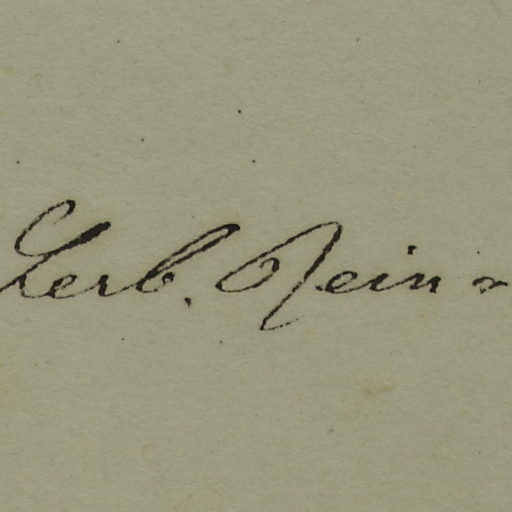 Herb. Rein-